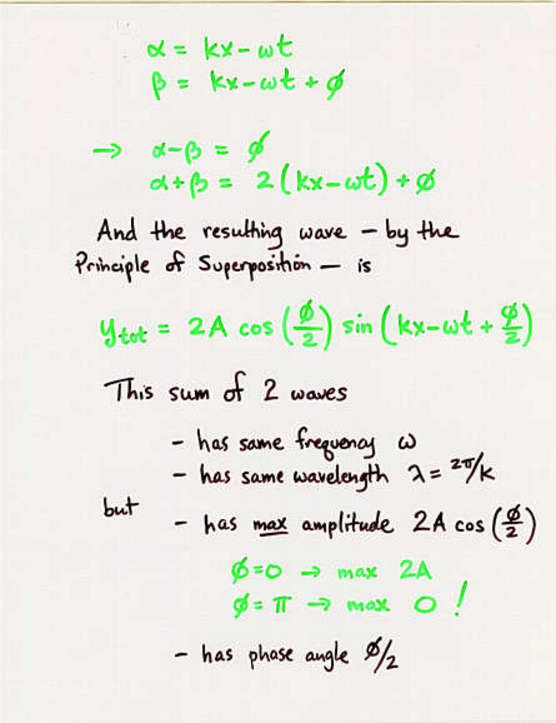 α = kx - ωt
β = kx - ωt + ϕ
→ α-β = ϕ
α+β = 2(kx-ωt) + ϕ
And the resulting wave - by the
Principle of Superposition - is
ytot = 2A cos(ϕ/2) sin(kx-ωt + ϕ/2)
This sum of 2 waves
- has same frequency ω
- has same wavelength λ = 2π/k
but
- has max amplitude 2A cos(ϕ/2)
ϕ=0 → max 2A
ϕ=π → max 0!
- has phase angle ϕ/2